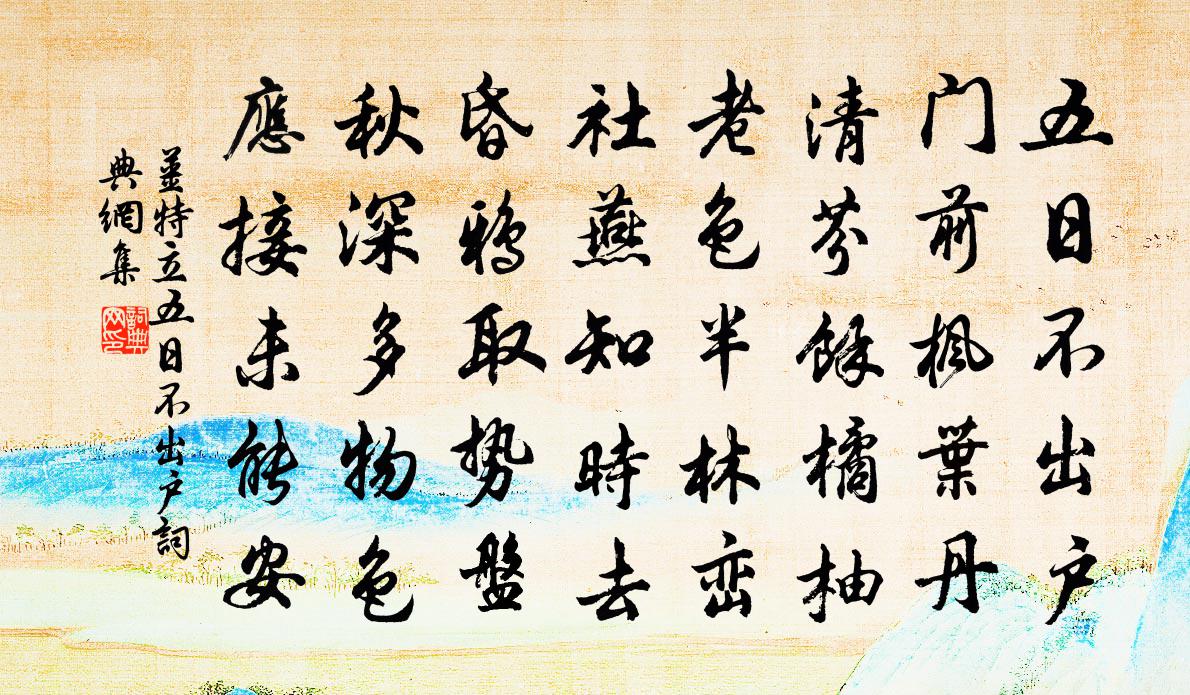 五日不出户
门前枫葉丹
清芬餘橘柚
老色半林峦
社燕知時去
昏鴉取势盤
秋深多物色
應接未能安
姜特立五日不出户詞
典網集
詞典网印